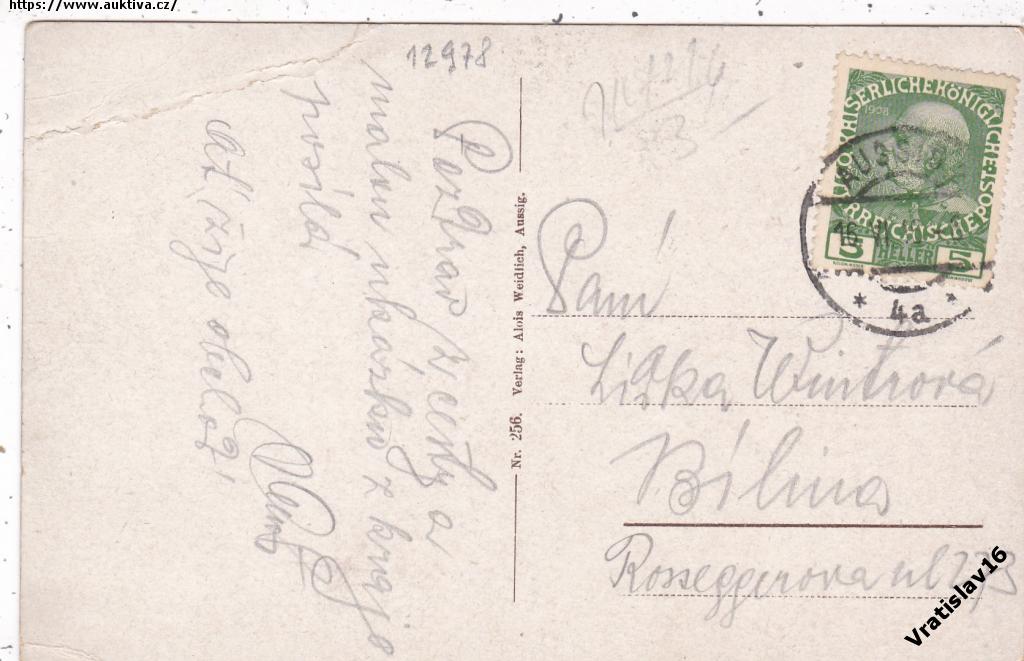 https://www.auktiva.cz/
12978
Pozdrav z cesty a
malou ukázku z kraje
posílá
Ať žije
Nr. 256. Verlag: Alois Weidlich, Aussig.
KAISERLICHE KÖNIGLICHE ÖSTERREICHISCHE POST
1908
5 HELLER 5
AUSSIG
* 4a *
Paní
Lidka Wintrová
Bílina
Roseggerova ul 273
Vratislav16